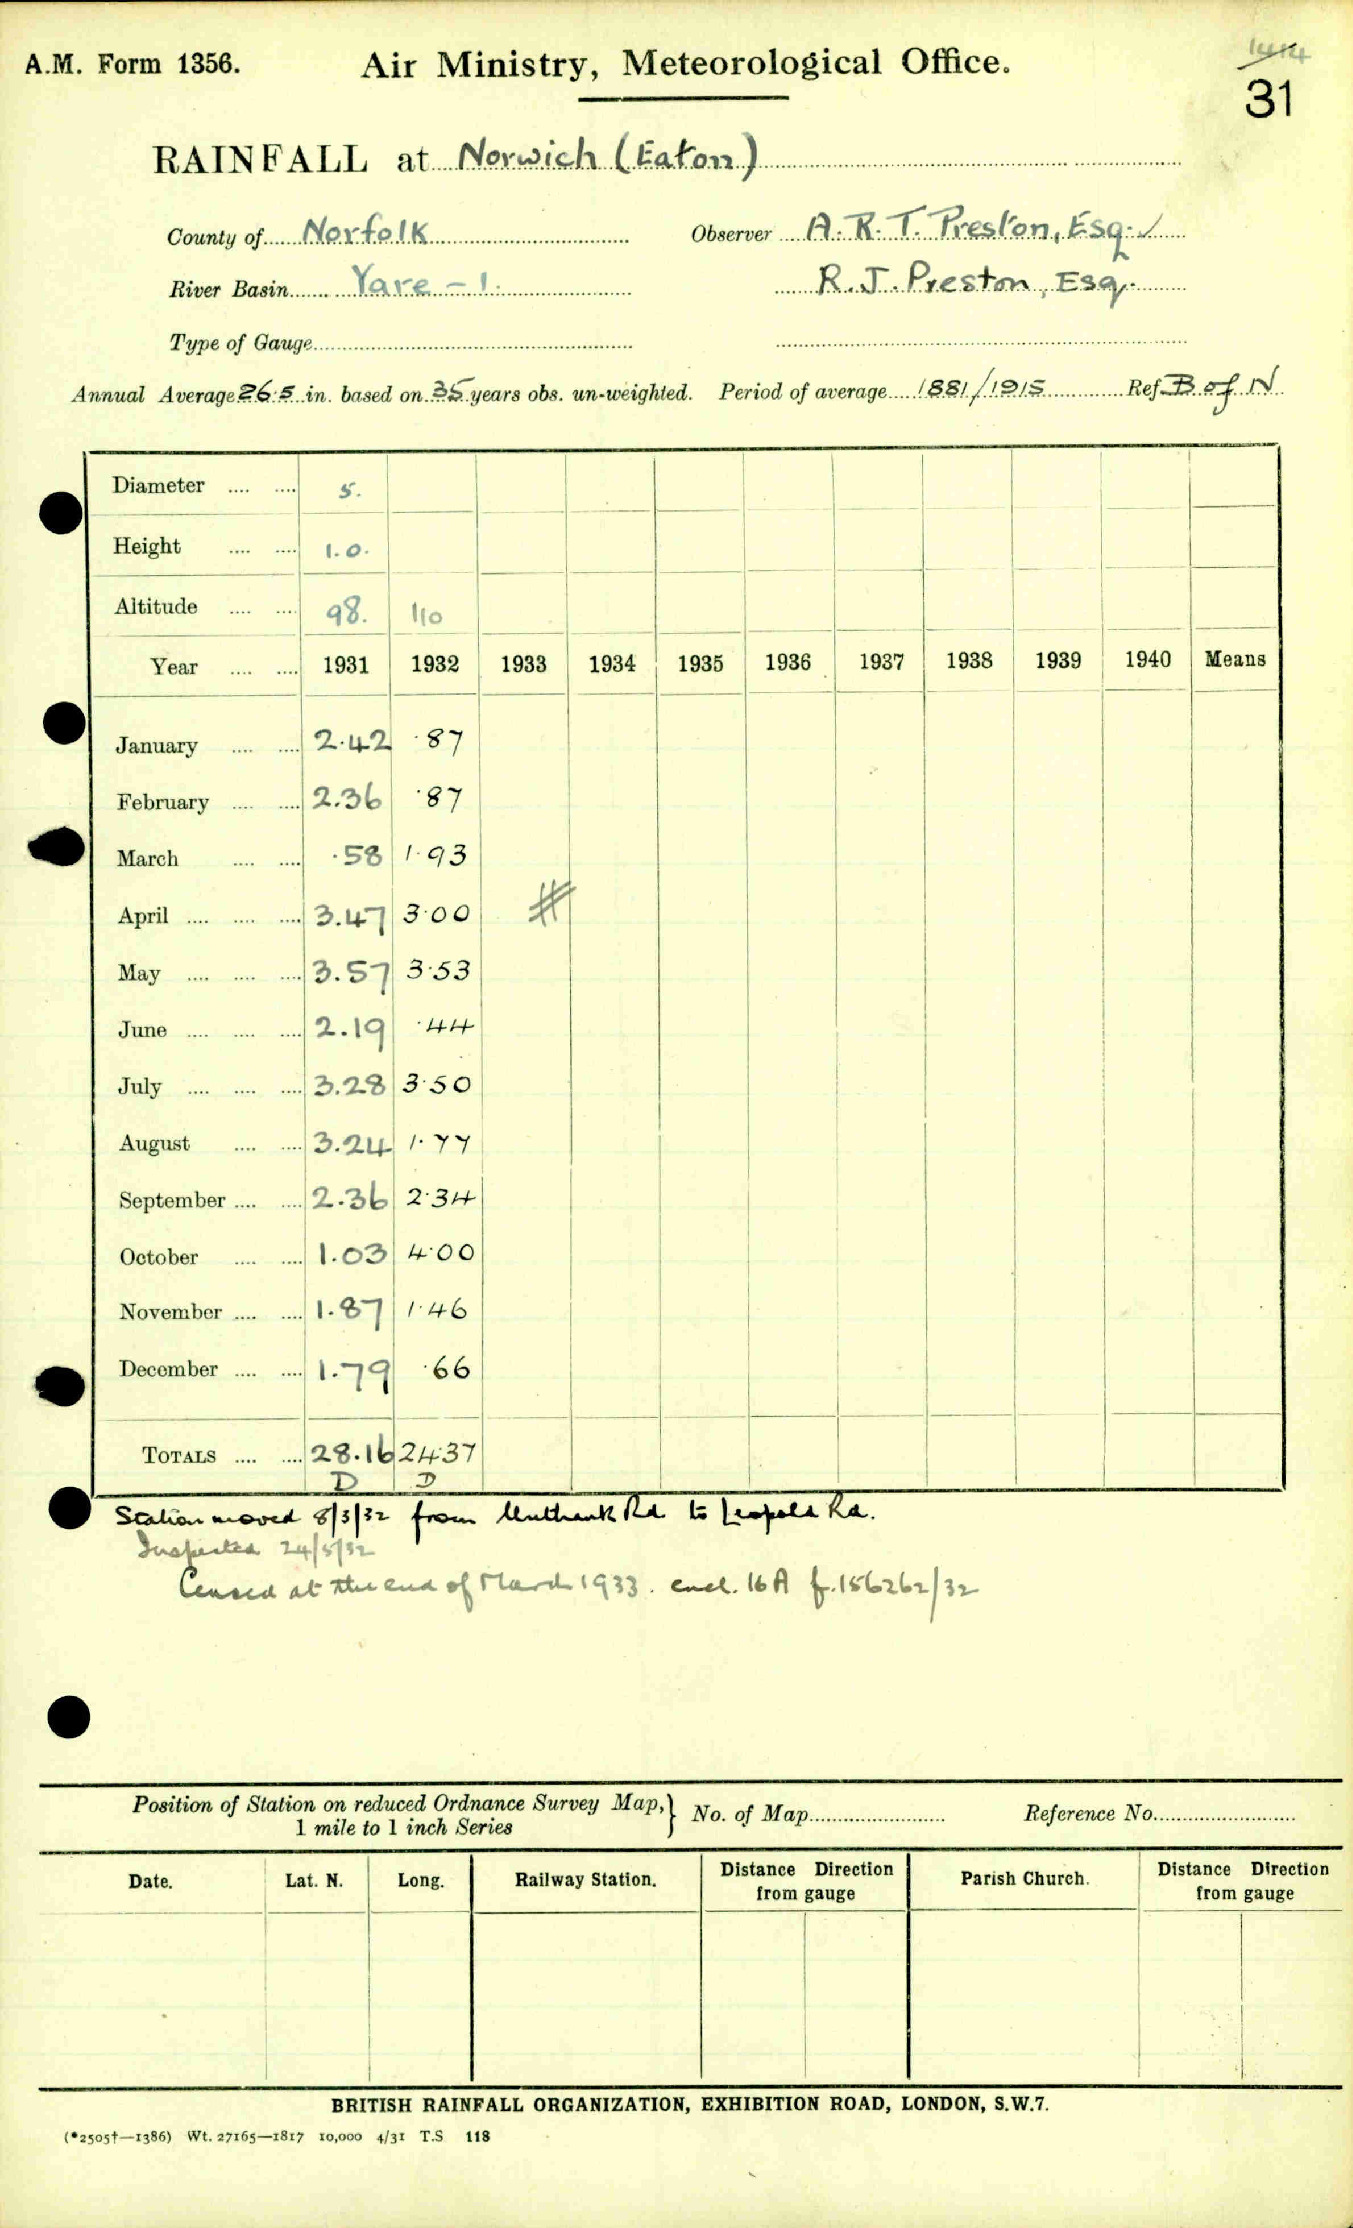 A.M. Form 1356.
Air Ministry, Meteorological Office.
31
RAINFALL at Norwich (Eaton)
County of Norfolk Observer A. R. T. Preston, Esq. ✓
River Basin Yare - 1. R. J. Preston, Esq.
Type of Gauge
Annual Average 26.5 in. based on 35 years obs. un-weighted. Period of average 1881/1915 Ref. B of N
Diameter .... .... 5.
Height .... .... 1.0.
Altitude .... .... 98. 110
Year .... .... 1931 1932 1933 1934 1935 1936 1937 1938 1939 1940 Means
January .... .... 2.42 .87
February .... .... 2.36 .87
March .... .... .58 1.93
April .... .... .... 3.47 3.00 #
May .... .... .... 3.57 3.53
June .... .... .... 2.19 .44
July .... .... .... 3.28 3.50
August .... .... 3.24 1.77
September .... .... 2.36 2.34
October .... .... 1.03 4.00
November .... .... 1.87 1.46
December .... .... 1.79 .66
TOTALS .... .... 28.16 24.37
D D
Station moved 8/3/32 from Unthank Rd to Leopold Rd.
Inspected 24/5/32
Ceased at the end of March 1933. encl. 16A f.156262/32
Position of Station on reduced Ordnance Survey Map, } No. of Map Reference No.
1 mile to 1 inch Series
Date. Lat. N. Long. Railway Station. Distance Direction from gauge Parish Church. Distance Direction from gauge
BRITISH RAINFALL ORGANIZATION, EXHIBITION ROAD, LONDON, S.W.7.
(*2505†—1386) Wt. 27165—1817 10,000 4/31 T.S 118